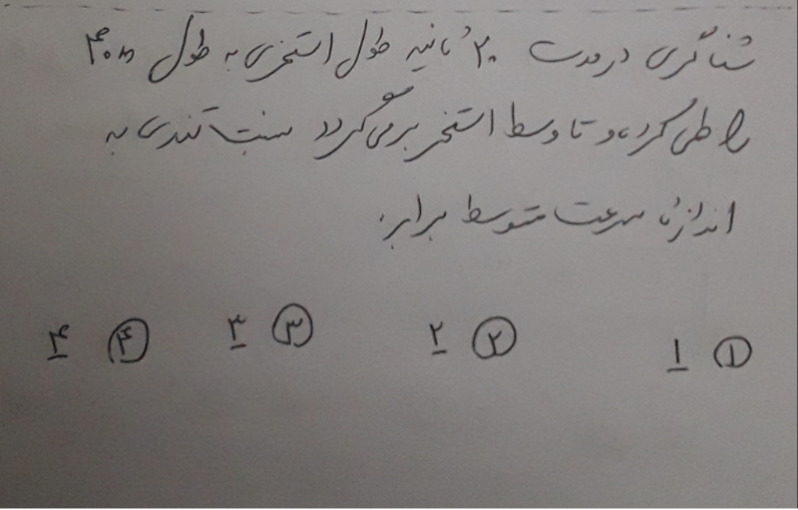 شناگری در مدت ۲۰ ثانیه طول استخری به طول ۴۰m
را طی کرده و تا وسط استخر برمی‌گردد نسبت تندی به
اندازهٔ سرعت متوسط برابر:
۱) ۱ ۲) ۲ ۳) ۳ ۴) ۴